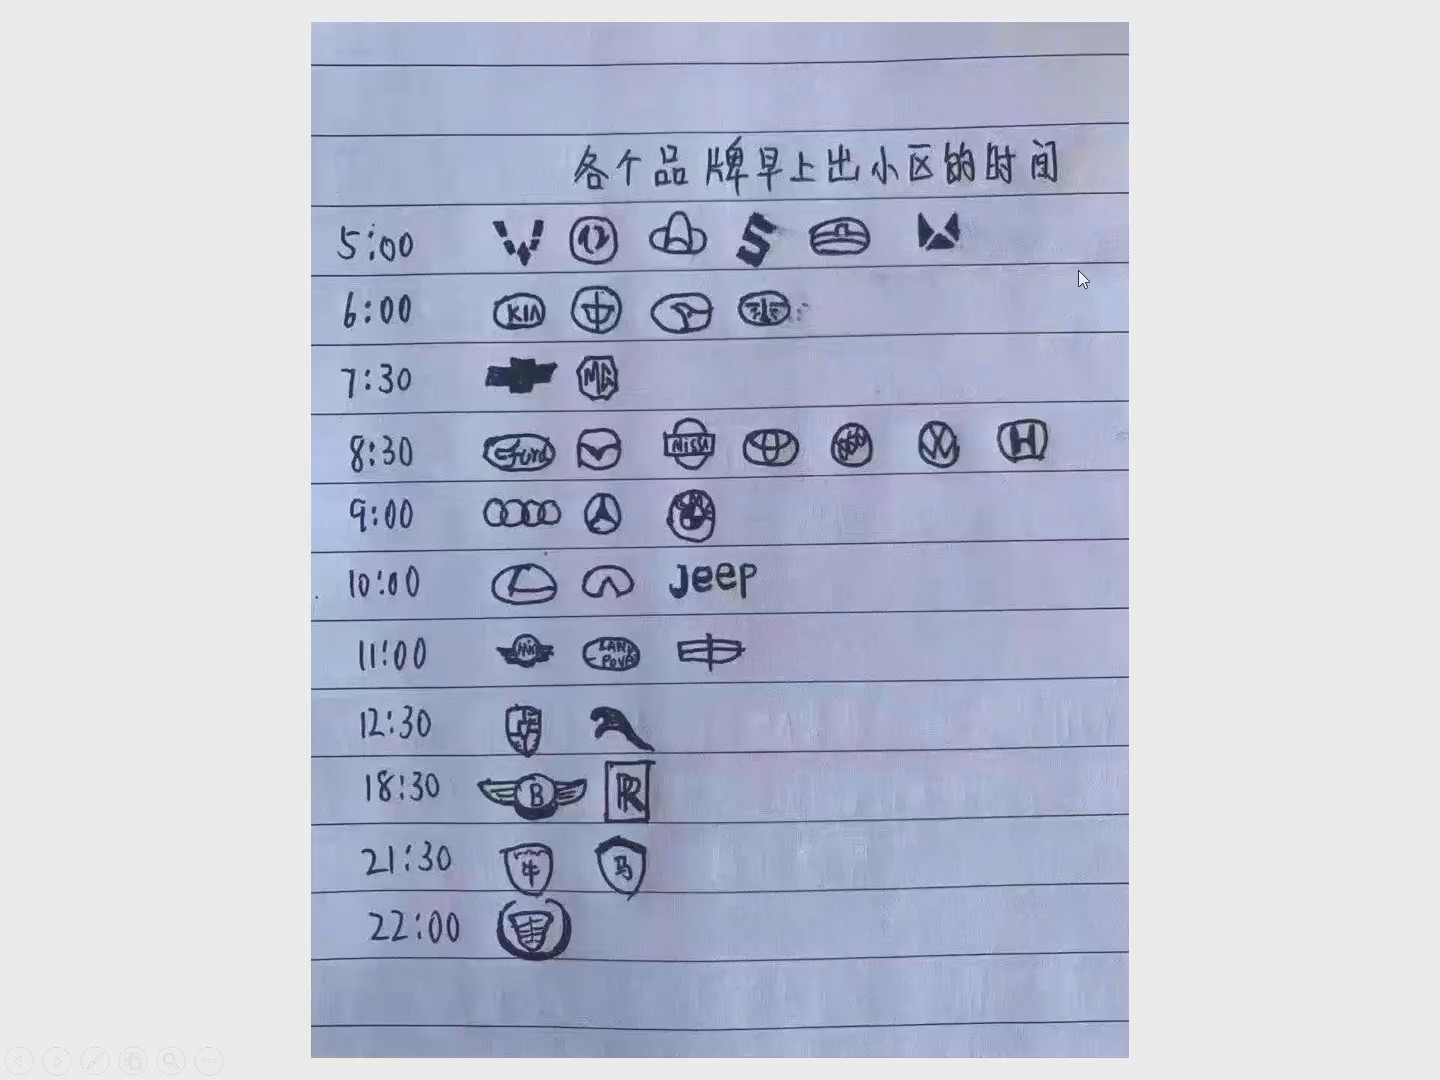 各个品牌早上出小区的时间
5:00
6:00 KIA
7:30 MG
8:30 Ford Nissa H
9:00
10:00 Jeep
11:00 LAND
12:30
18:30 B RR
21:30 牛 马
22:00